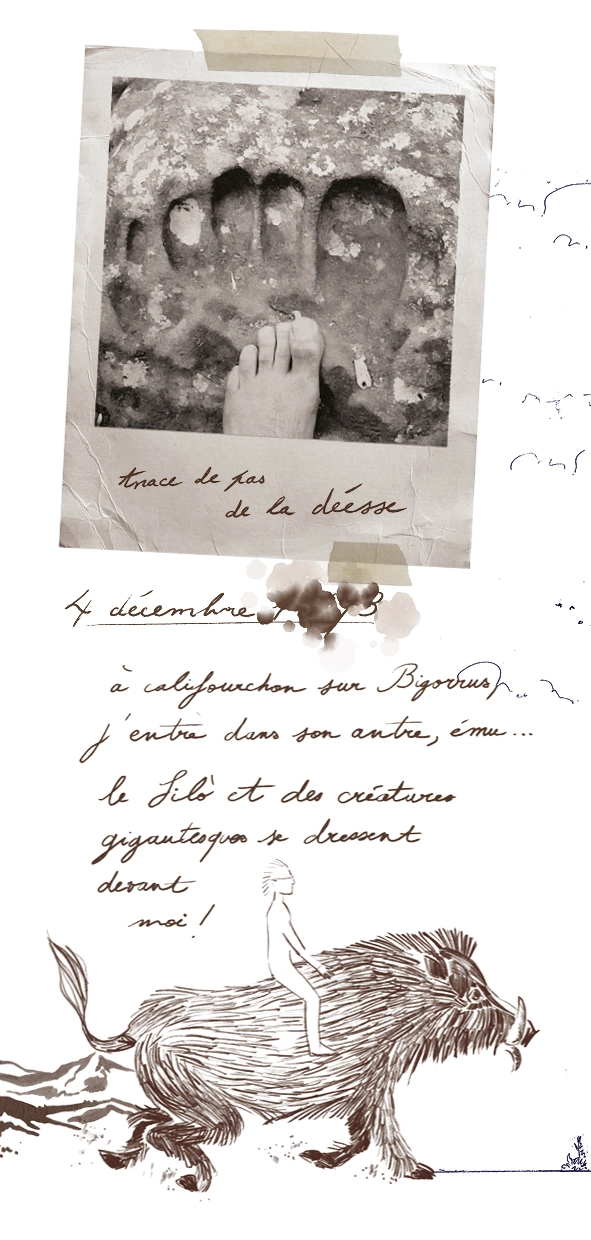 trace de pas
de la déesse
4 décembre
à califourchon sur Bigorrus,
j'entre dans son antre, ému...
le Silò et des créatures
gigantesques se dressent
devant
moi !